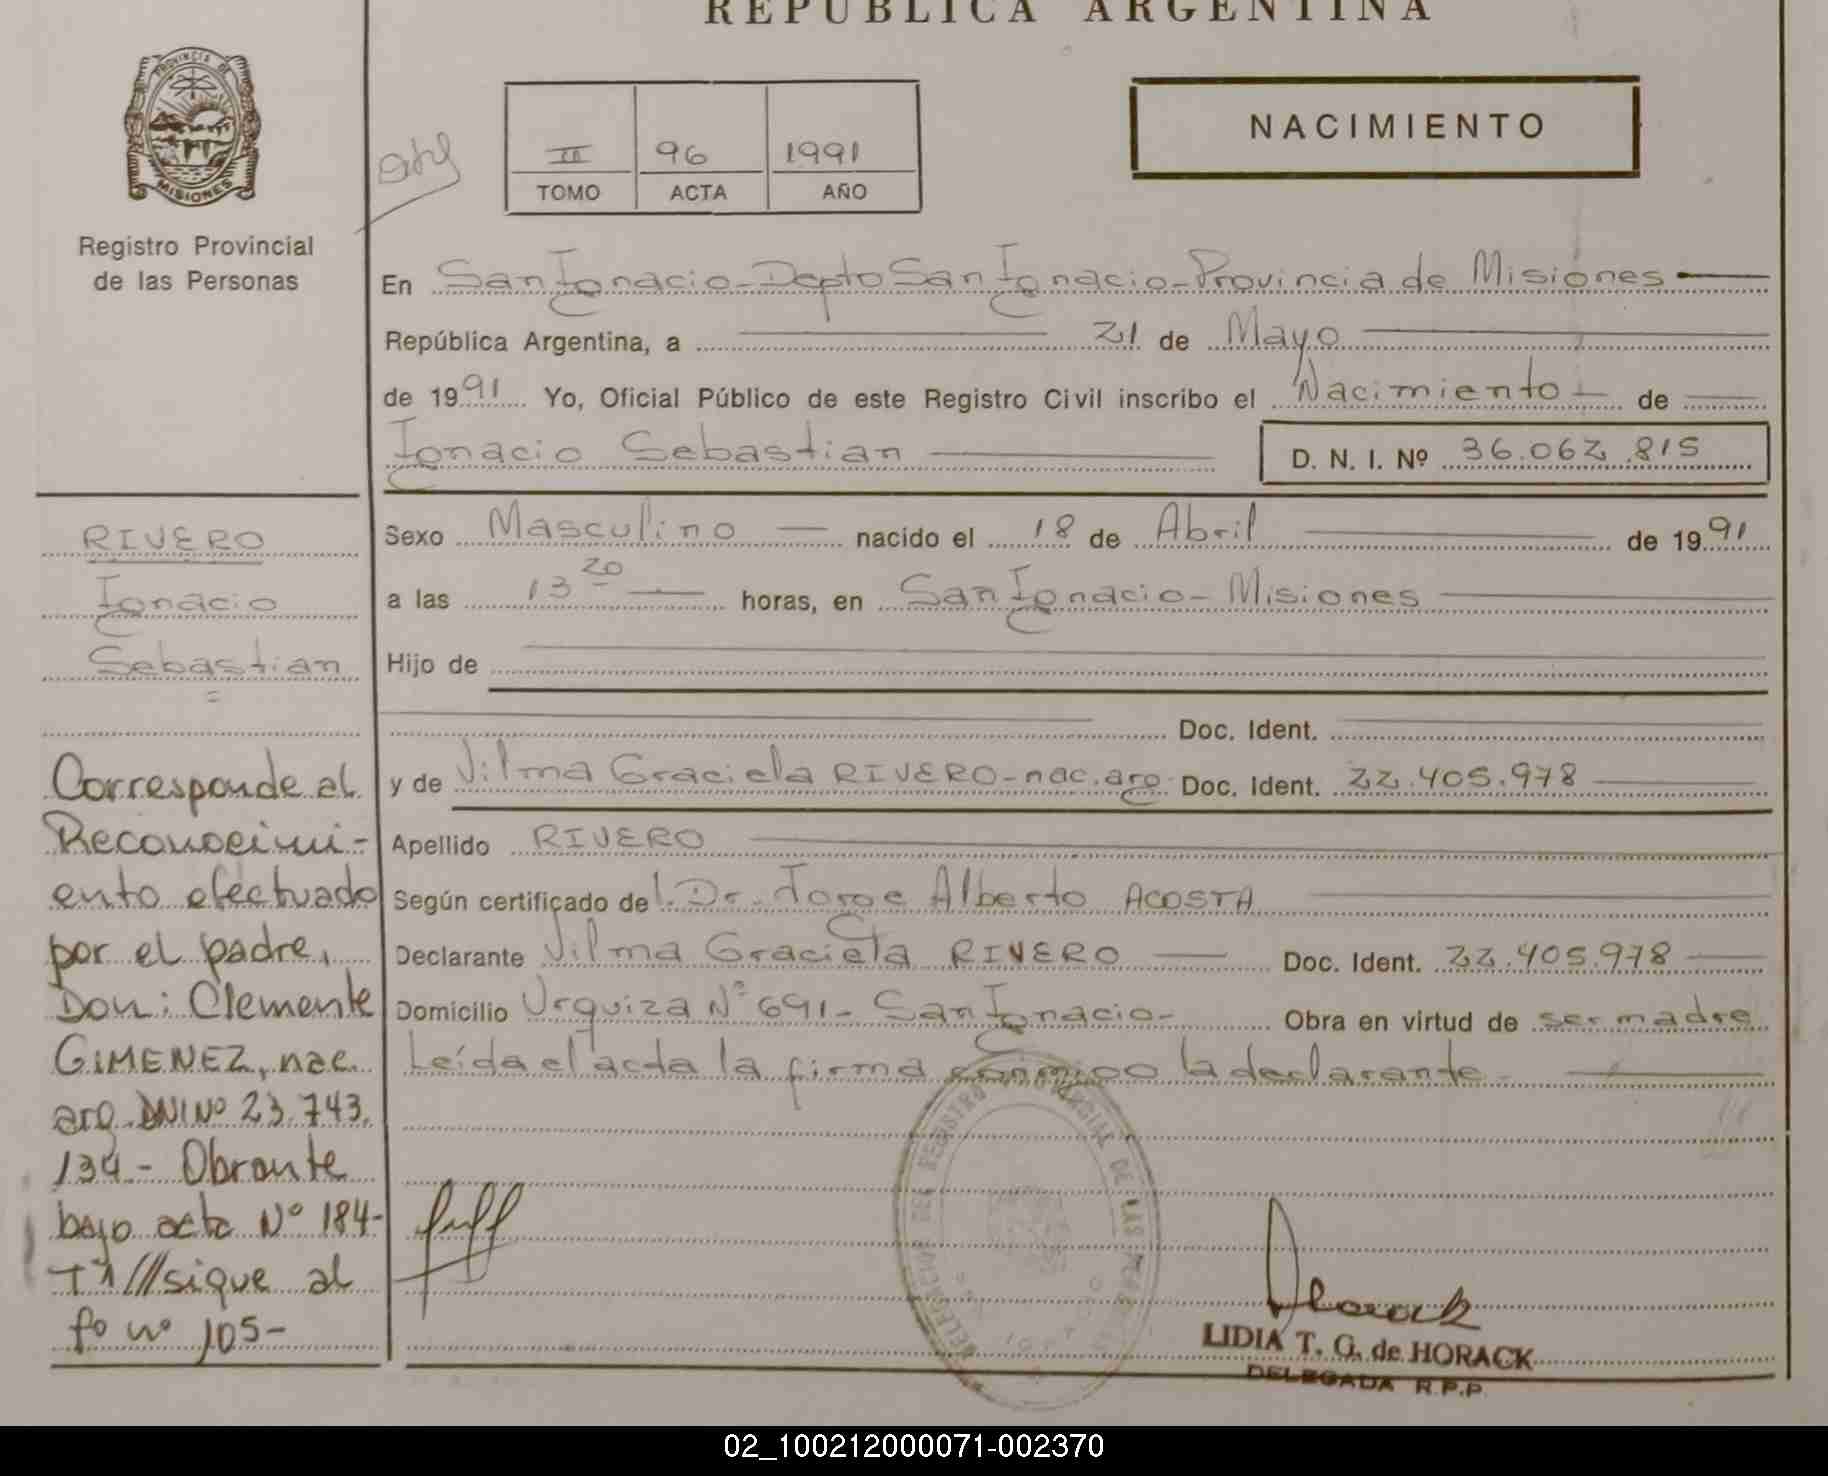 REPUBLICA ARGENTINA
PROVINCIA DE
MISIONES
Registro Provincial
de las Personas
II 96 1991
TOMO ACTA AÑO
NACIMIENTO
En San Ignacio - Depto San Ignacio - Provincia de Misiones
República Argentina, a 21 de Mayo
de 1991 Yo, Oficial Público de este Registro Civil inscribo el Nacimiento de
Ignacio Sebastian D. N. I. Nº 36.062.815
Sexo Masculino nacido el 18 de Abril de 1991
a las 13 20 horas, en San Ignacio - Misiones
Hijo de
Doc. Ident.
y de Vilma Graciela RIVERO - nac. arg. Doc. Ident. 22.405.978
Apellido RIVERO
Según certificado del Dr. Jorge Alberto ACOSTA
Declarante Vilma Graciela RIVERO Doc. Ident. 22.405.978
Domicilio Urquiza Nº 691 - San Ignacio - Obra en virtud de ser madre
Leída el acta la firma conmigo la declarante
RIVERO
Ignacio
Sebastian
Corresponde al
Reconocimi-
ento efectuado
por el padre,
Don: Clemente
GIMENEZ, nac.
arg. DNI Nº 23.743.
134 - Obrante
bajo acta Nº 184-
Tº 1 /// sigue al
fo nº 105-
DELEGACION DEL REGISTRO PROVINCIAL DE LAS PERSONAS
LIDIA T. G. de HORACK
DELEGADA R.P.P.
02_100212000071-002370